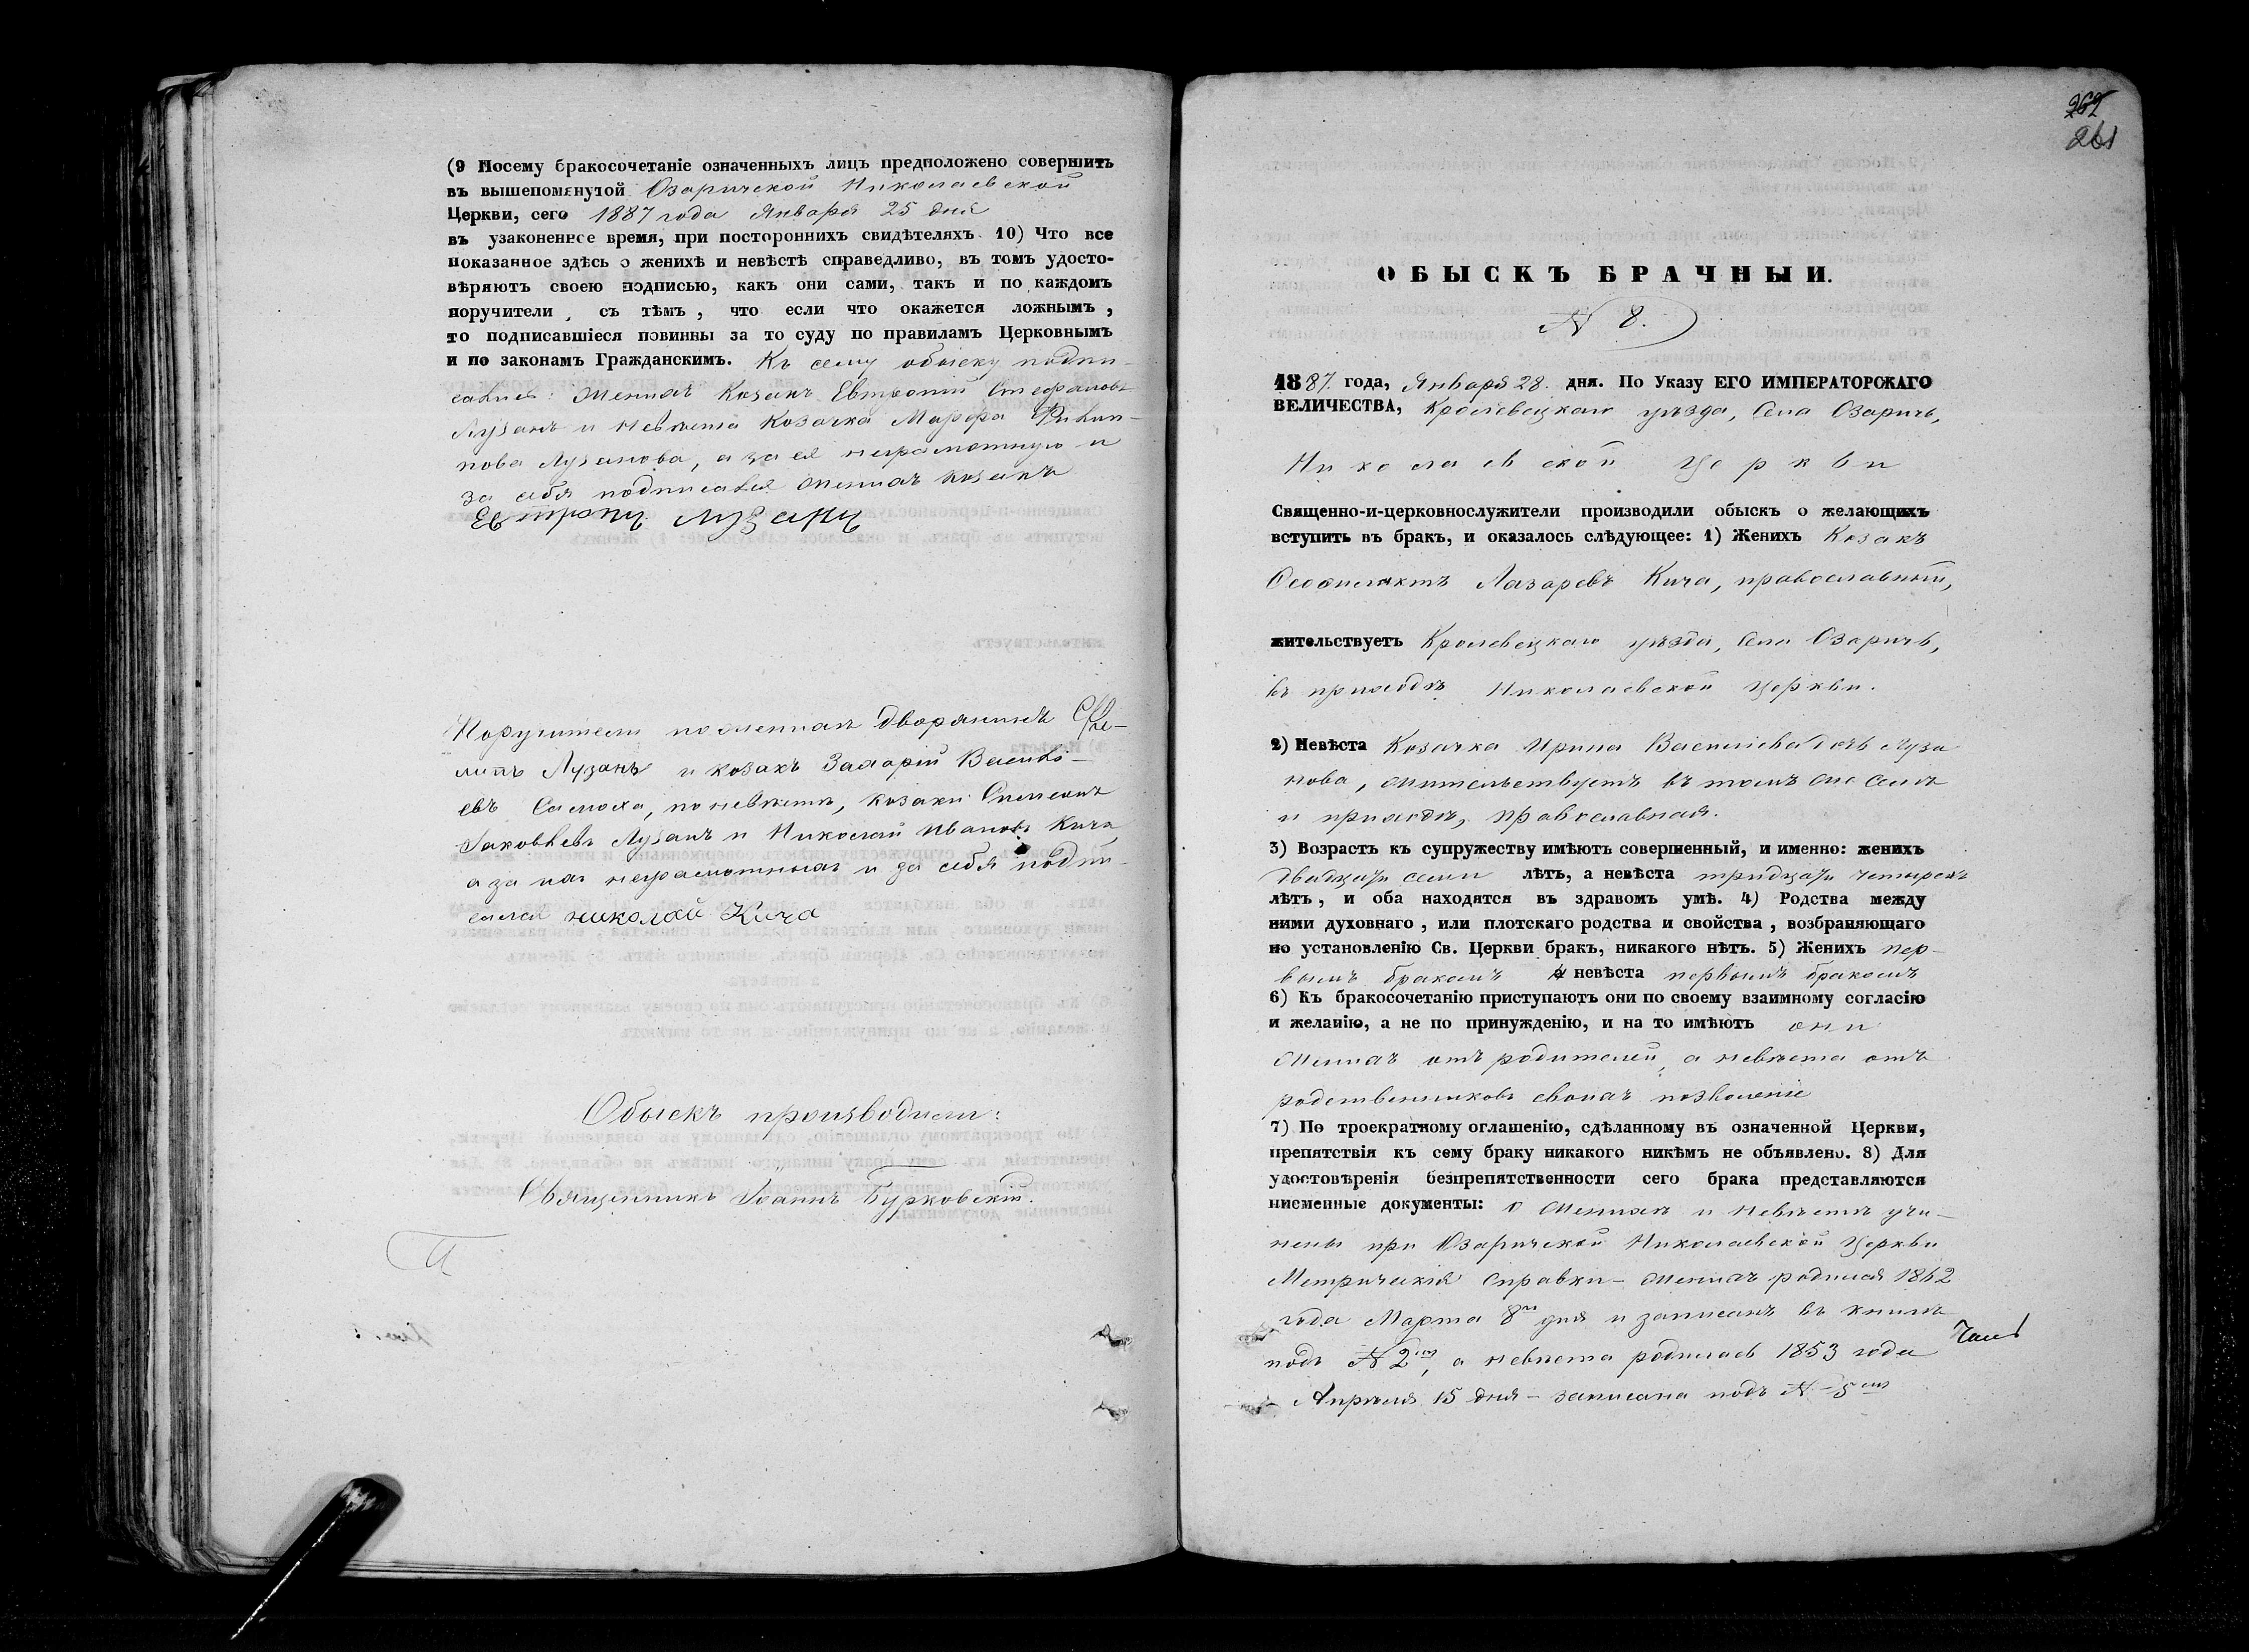 (9 Посему бракосочетаніе означенныхъ лицъ предположено совершить
въ вышепомянутой Озаричской Николаевской
Церкви, сего 1887 года Января 25 дня
въ узаконенное время, при постороннихъ свидѣтеляхъ. 10) Что все
показанное здѣсь о женихѣ и невѣстѣ справедливо, въ томъ удосто-
вѣряютъ своею подписью, какъ они сами, такъ и по каждомъ
поручители, съ тѣмъ, что если что окажется ложнымъ,
то подписавшіеся повинны за то суду по правиламъ Церковнымъ
и по законамъ Гражданскимъ. Къ сему обыску подпи-
сались: Женихъ Козакъ Евтропій Стефановъ
Лузанъ и невѣста Козачка Марфа Филип-
пова Лузанова, а за ея неграмотную и
за себя подписался женихъ козакъ
Евтропи Лузанъ
Поручители по женихѣ дворянинъ Фи-
липъ Лузанъ и козакъ Захарій Василь-
евъ Самоха, по невѣстѣ, козаки
Іаковлевъ Лузанъ и Николай Ивановъ Кича,
а за нихъ неграмотныхъ и за себя подпи-
сался николай Кича
Обыскъ производили:
Священникъ Іоаннъ Бурковскій.
262
261
ОБЫСКЪ БРАЧНЫЙ.
№ 8.
1887. года, Января 28. дня. По Указу ЕГО ИМПЕРАТОРСКАГО
ВЕЛИЧЕСТВА, Кролевецкаго уѣзда, Села Озаричъ,
Николаевской Церкви
Священно-и-церковнослужители производили обыскъ о желающихъ
вступить въ бракъ, и оказалось слѣдующее: 1) Женихъ Козакъ
Феофилактъ Лазаревъ Кича, православный,
жительствуетъ Кролевецкаго уѣзда, Села Озаричъ,
въ приходѣ Николаевской Церкви.
2) Невѣста Козачка Ирина Васильева дочь Луза
нова, жительствуетъ въ томъ же селѣ
и приходѣ, православная.
3) Возрастъ къ супружеству имѣютъ совершенный, и именно: женихъ
двадцати семи лѣтъ, а невѣста тридцати четырехъ
лѣтъ, и оба находятся въ здравомъ умѣ. 4) Родства между
ними духовнаго, или плотскаго родства и свойства, возбраняющаго
по установленію Св. Церкви бракъ, никакого нѣтъ. 5) Женихъ пер-
вымъ бракомъ и невѣста первымъ бракомъ
6) Къ бракосочетанію приступаютъ они по своему взаимному согласію
и желанію, а не по принужденію, и на то имѣютъ они
Женихъ отъ родителей, а невѣста отъ
родственниковъ своихъ позволеніе
7) По троекратному оглашенію, сдѣланному въ означенной Церкви,
препятствія къ сему браку никакого никѣмъ не объявлено. 8) Для
удостовѣренія безпрепятственности сего брака представляются
писменные документы: О женихѣ и невѣстѣ учи-
нены при Озаричской Николаевской Церкви
Метрическія справки - женихъ родился 1862
года Марта 8го дня и записанъ въ книгѣ
подъ № 2мъ, а невѣста родилась 1853 года
Апрѣля 15 дня - записана подъ № 5мъ